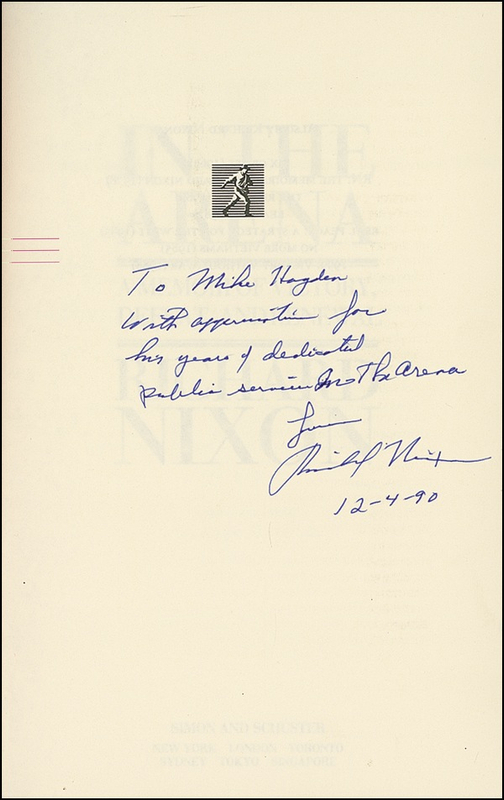 To Mike Hayden
With appreciation for
his years of dedicated
public service In The Arena
from
Richard Nixon
12-4-90
IN THE
ARENA
RICHARD
NIXON
SIMON AND SCHUSTER
NEW YORK LONDON TORONTO
SYDNEY TOKYO SINGAPORE